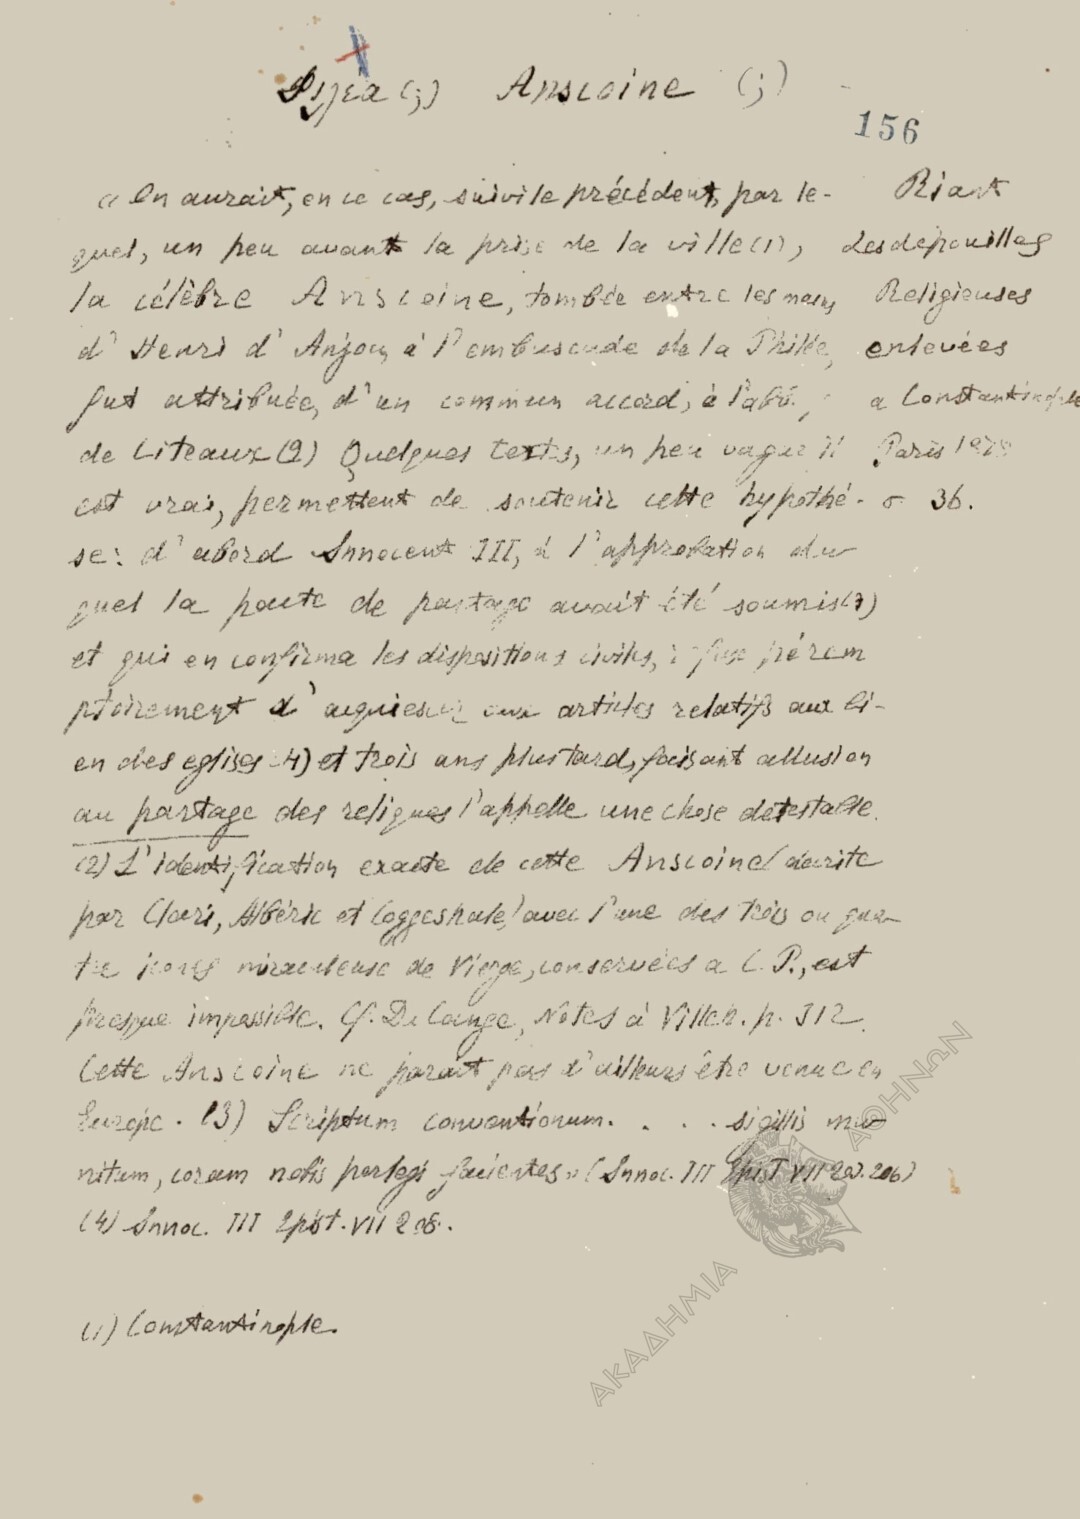 Ansconine (;)
156
« On aurait, en ce cas, suivi le précédent, par le-
quel, un peu avant la prise de la ville (1),
la célèbre Ansconine, tombée entre les mains
d' Henri d' Anjou, à l'embuscade de la Philée,
fut attribuée, d'un commun accord, à l'abbé
de Citeaux (2) Quelques textes, un peu vague il
est vrai, permettent de soutenir cette hypothé-
se: d'abord Innocent III, à l'approbation du
quel la pacte de partage avait été soumis (3)
et qui en confirma les dispositions civiles, pérem
ptoirement d' aux articles relatifs aux bi-
en des eglises (4) et trois ans plus tard, faisant allusion
au partage des reliques l'appelle une chose detestable.
(2) L'identification exacte de cette Ansconine (décrite
par Clari, Albéric et Coggeshale) avec l'une des trois ou qua-
tre icones miraculeuse de Vierge, conservées a C. P., est
presque impossible. Cf. Du Cange, Notes à Villeh. p. 312.
Cette Ansconine ne parait pas d'ailleurs être venue en
Europe. (3) Scriptum conventionum. . . . sigillis mu-
nitum, coram nobis perlegi facientes » (Innoc. III Epist VII 206)
(4) Innoc. III Epist. VII 208.
(1) Constantinople.
Riant
Les dépouilles
Religieuses
enlevées
a Constantinople
Paris
σ 36.
ΑΚΑΔΗΜΙΑ ΑΘΗΝΩΝ